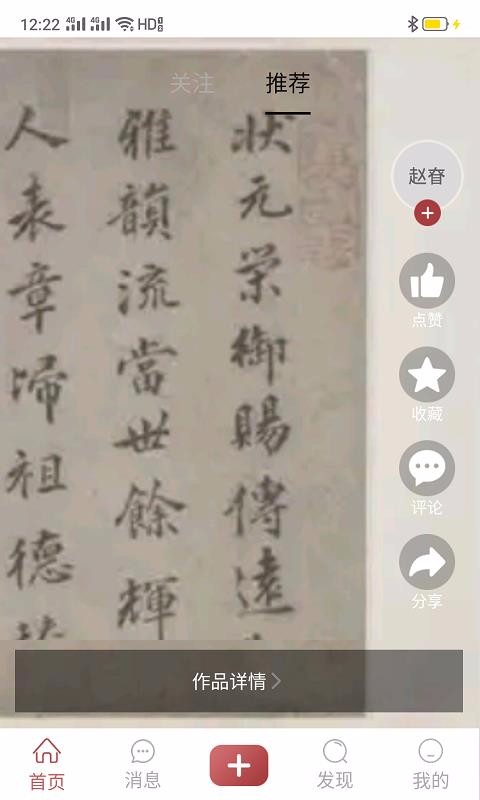 12:22
HD
关注
推荐
状元荣御賜傳遠
雅韻流當世餘輝
人表章歸祖德
赵眘
点赞
收藏
评论
分享
作品详情
首页
消息
发现
我的